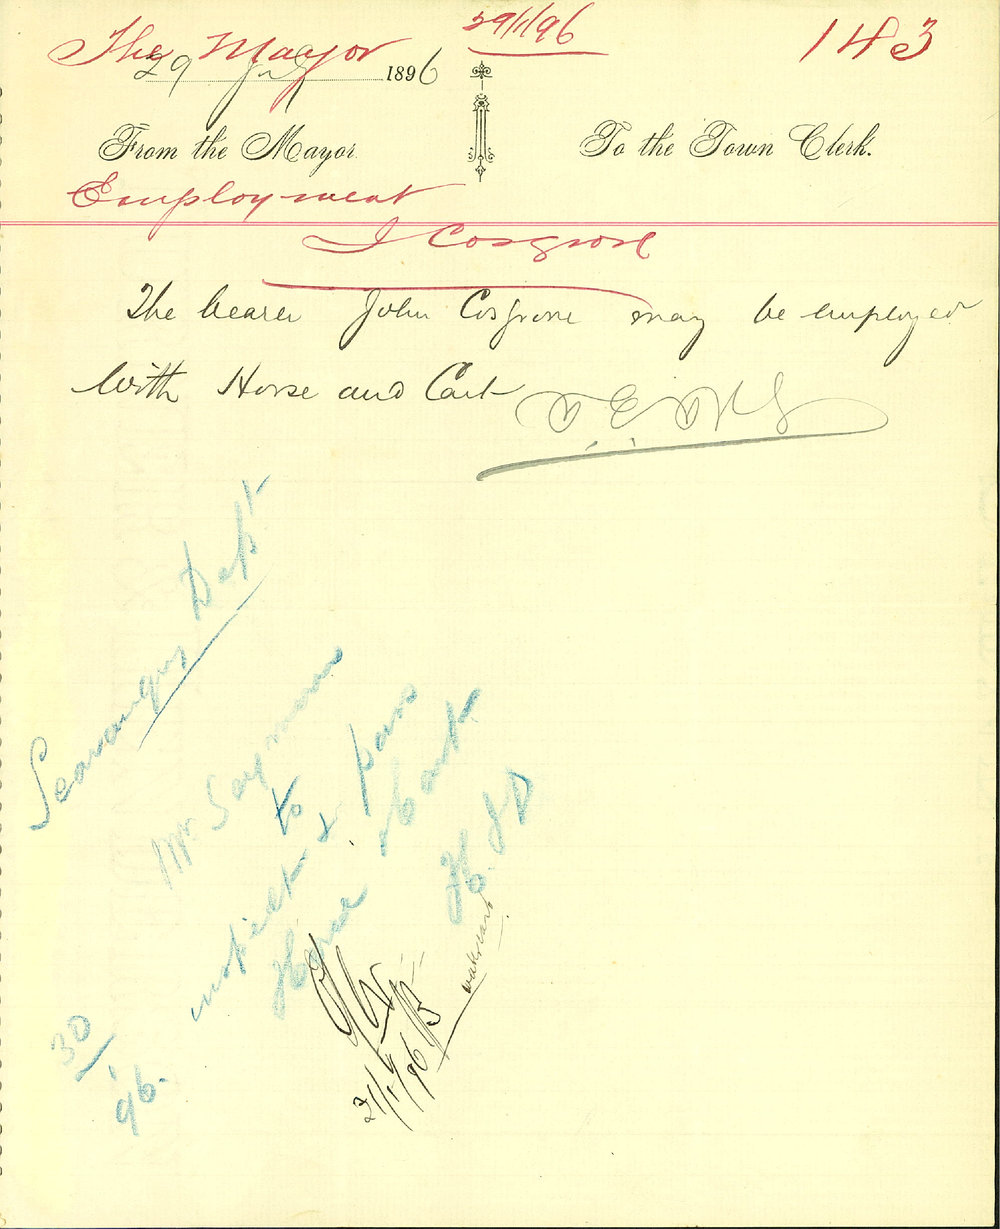 The Mayor 29/1/96 143
29 1896
From the Mayor To the Town Clerk.
Employment
J Cosgrove
The bearer John Cosgrove may be employed
With Horse and Cart
Scavengry Dept
Mr. Seymour
to
& pass
Horse Cart
30
96.
watercart
31/1/96